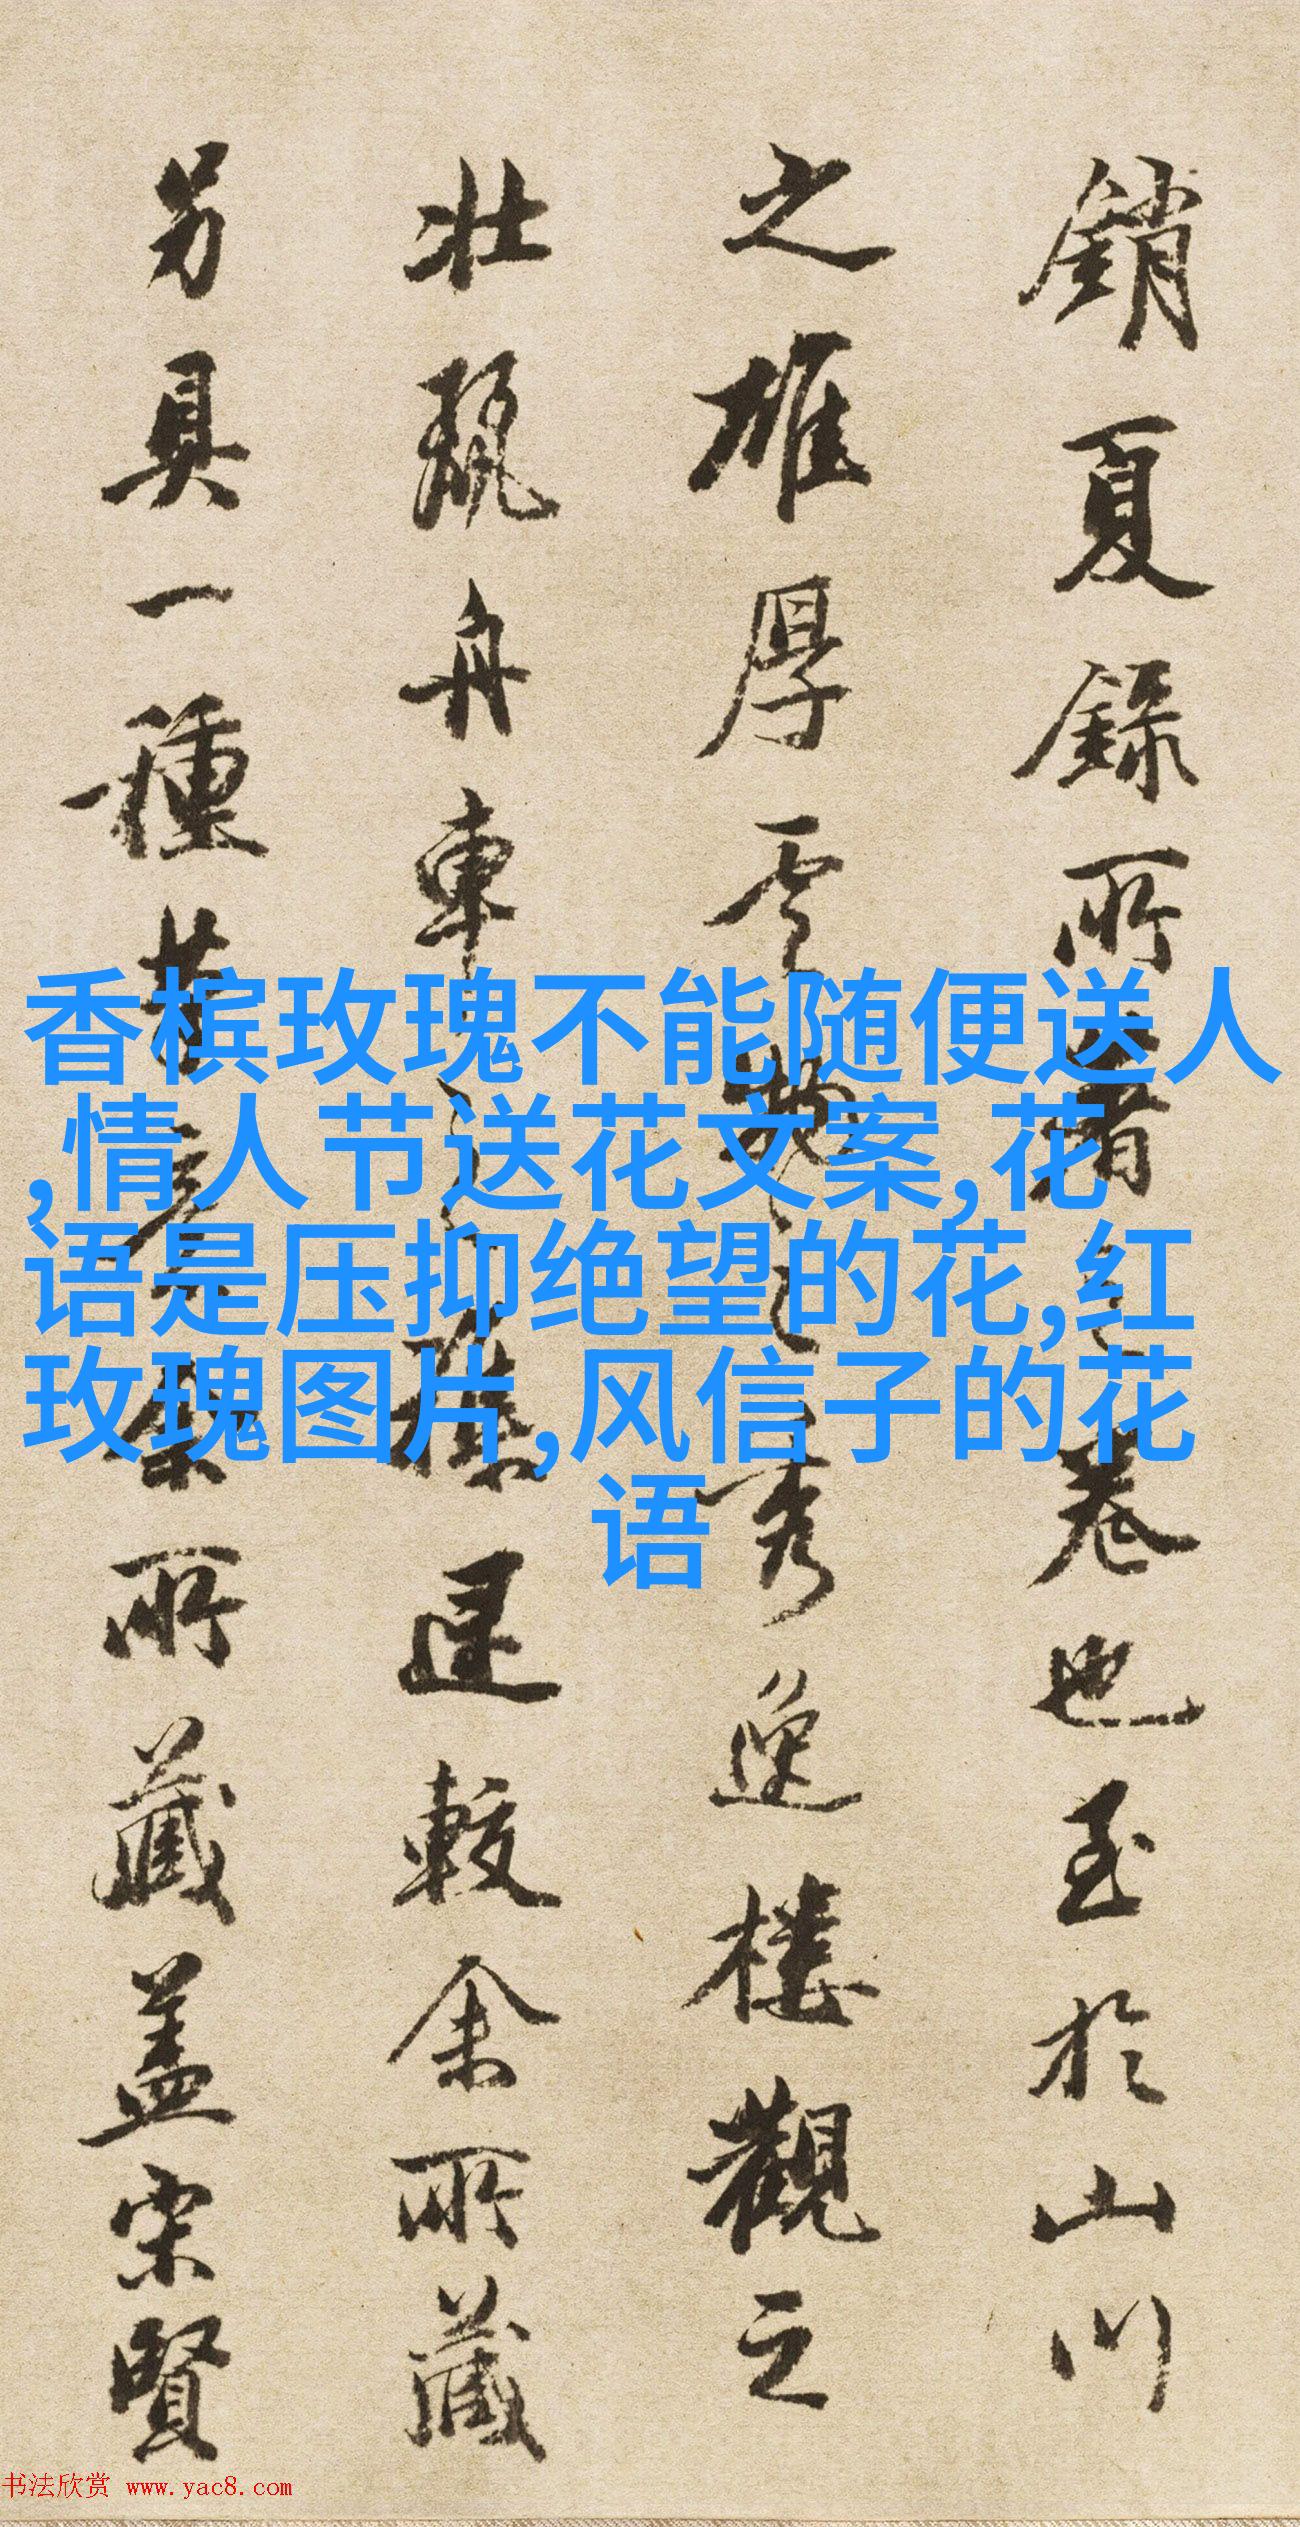 銷夏録所著之卷也至於山川
之雄厚云物之秀逸樓觀之
壯麗舟車之較余所藏
另具一種余所藏蓋宋賢
香槟玫瑰不能随便送人
,情人节送花文案,花
语是压抑绝望的花,红
玫瑰图片,风信子的花
语
书法欣赏 www.yac8.com